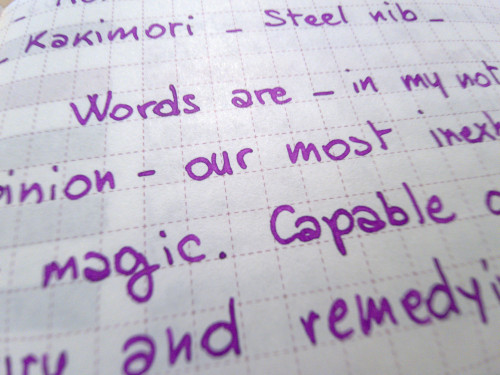 - Kakimori - Steel nib -
Words are - in my not
inion - our most inexh
magic. Capable o
ury and remedyi